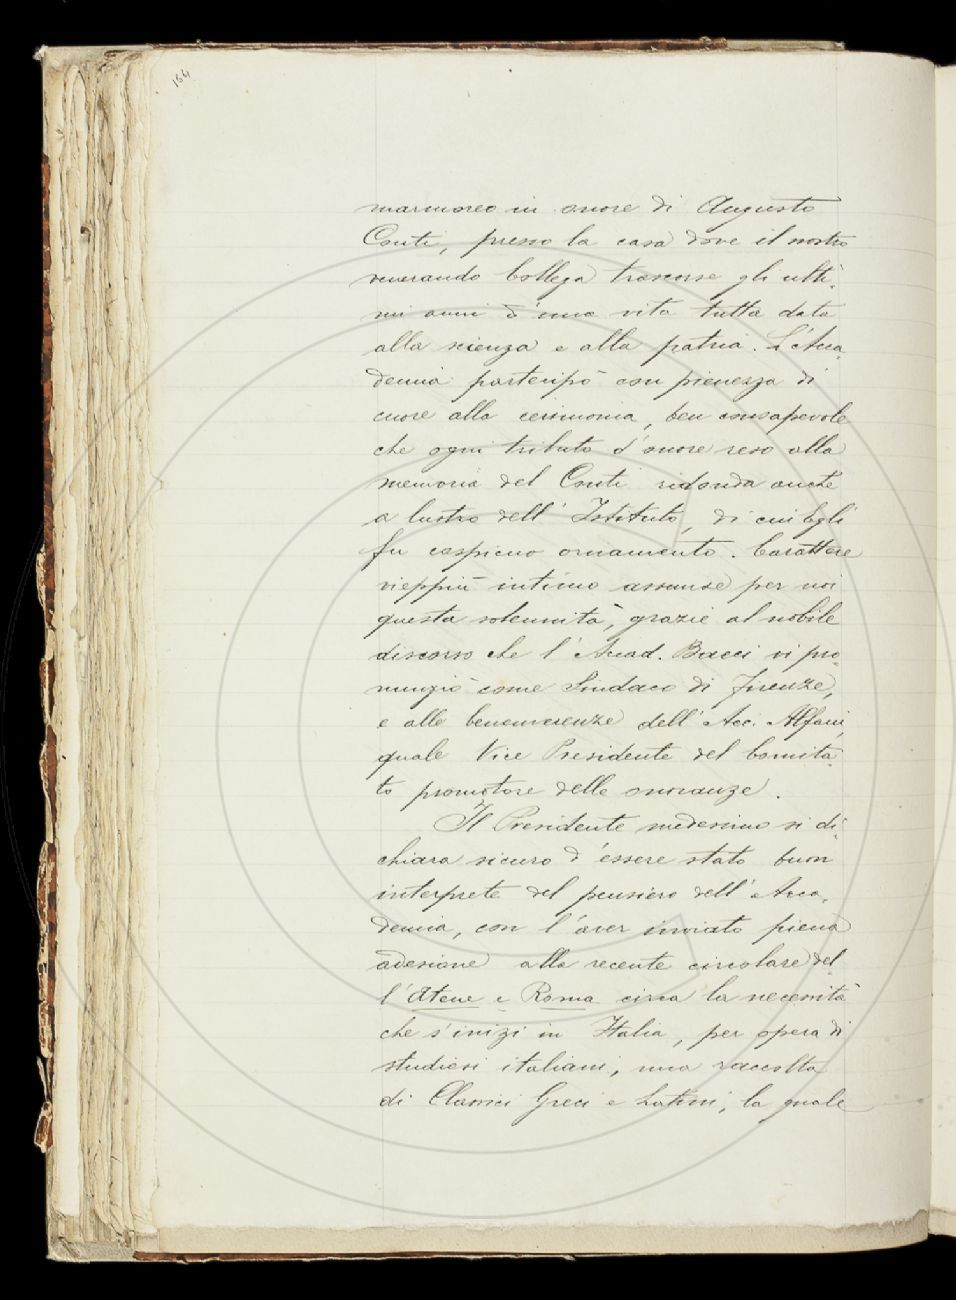 164
marmoreo in onore di Augusto
Conti, presso la casa dove il nostro
venerando Collega trascorse gli ulti-
mi anni d'una vita tutta data
alla scienza e alla patria. L'Acca-
demia partecipò con pienezza di
cuore alla cerimonia, ben consapevole
che ogni tributo d'onore reso alla
memoria del Conti ridonda anche
a lustro dell'Istituto, di cui Egli
fu cospicuo ornamento. Carattere
vieppiù intimo assunse per noi
questa solennità, grazie al nobile
discorso che l'Accad. Bacci vi pro-
nunziò come Sindaco di Firenze,
e alle benemerenze dell'Acc. Alfani,
quale Vice Presidente del Comita-
to promotore delle onoranze.
Il Presidente medesimo si di-
chiara sicuro d'essere stato buon
interprete del pensiero dell'Acca-
demia, con l'aver inviato piena
adesione alla recente circolare del
l'Atene e Roma circa la necessità
che s'inizi in Italia, per opera di
studiosi italiani, una raccolta
di Classici Greci e Latini, la quale